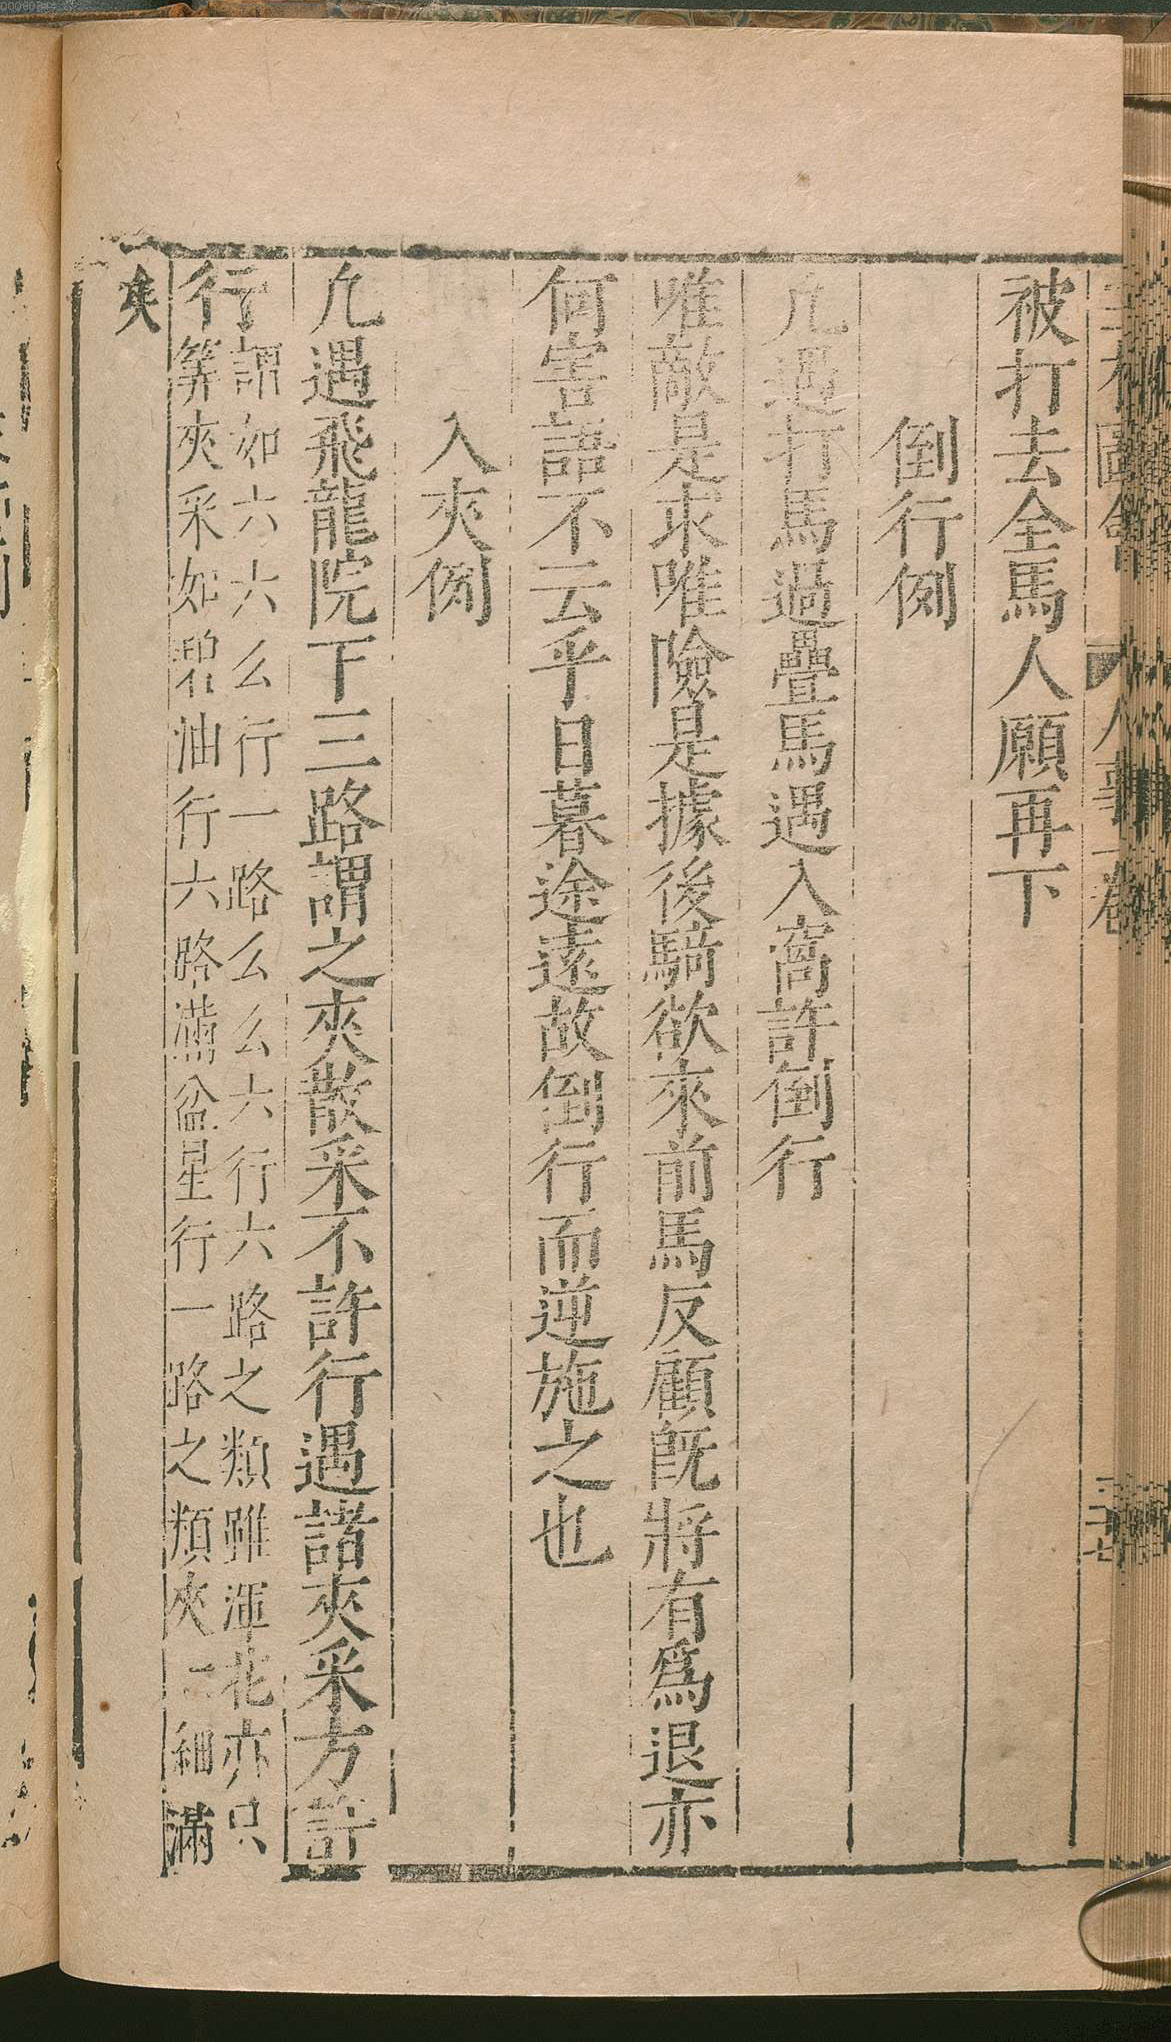 被打去全馬人願再下
倒行例
凢遇打馬過疊馬遇入窩許倒行
唯敵是求唯險是據後騎欲來前馬反顧既將有爲退亦
何害語不云乎日暮途遠故倒行而逆施之也
入夾例
凢遇飛龍院下三路謂之夾散采不許行遇諸夾采方許
行
謂如六六六么行一路么么六行六路之類雖渾花亦只
筭夾采如碧油行六路滿盆星行一路之類夾細滿